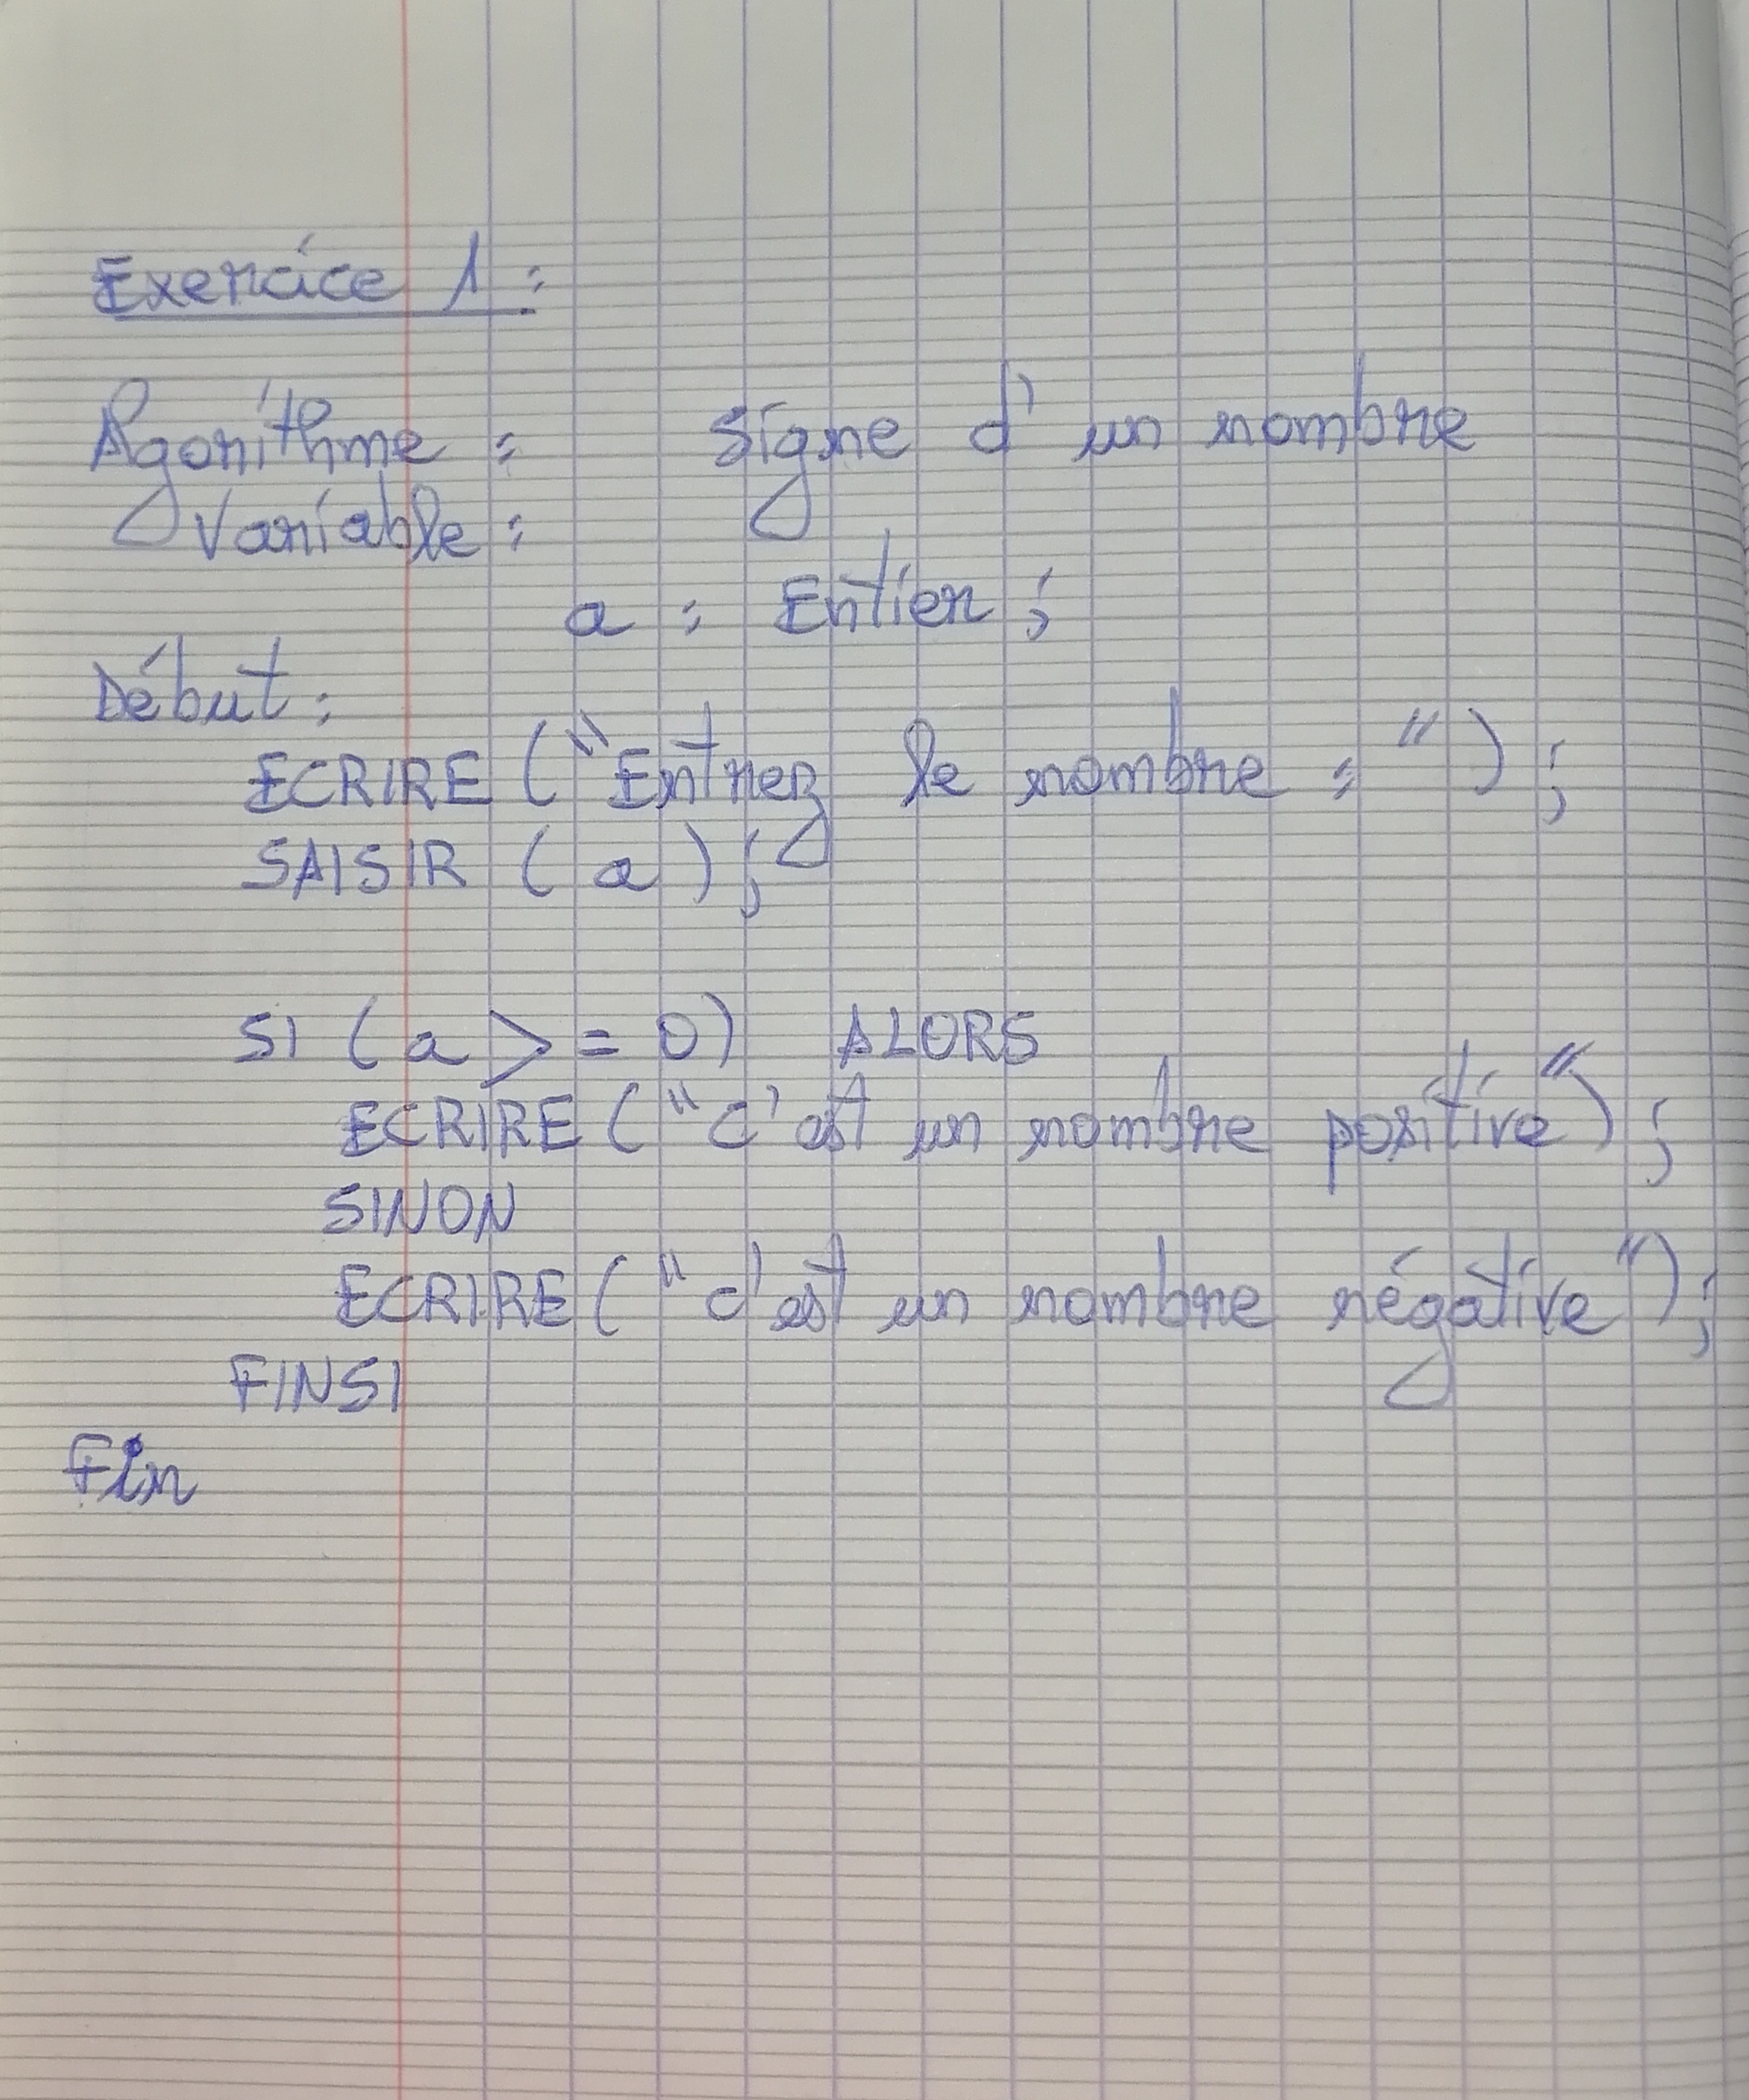 Exercice 1 :
Algorithme : Signe d'un nombre
Variable :
a : Entier ;
Début :
ECRIRE ("Entrez le nombre : ") ;
SAISIR (a) ;
SI (a >= 0) ALORS
ECRIRE ("c'est un nombre positive") ;
SINON
ECRIRE ("c'est un nombre négative") ;
FINSI
Fin